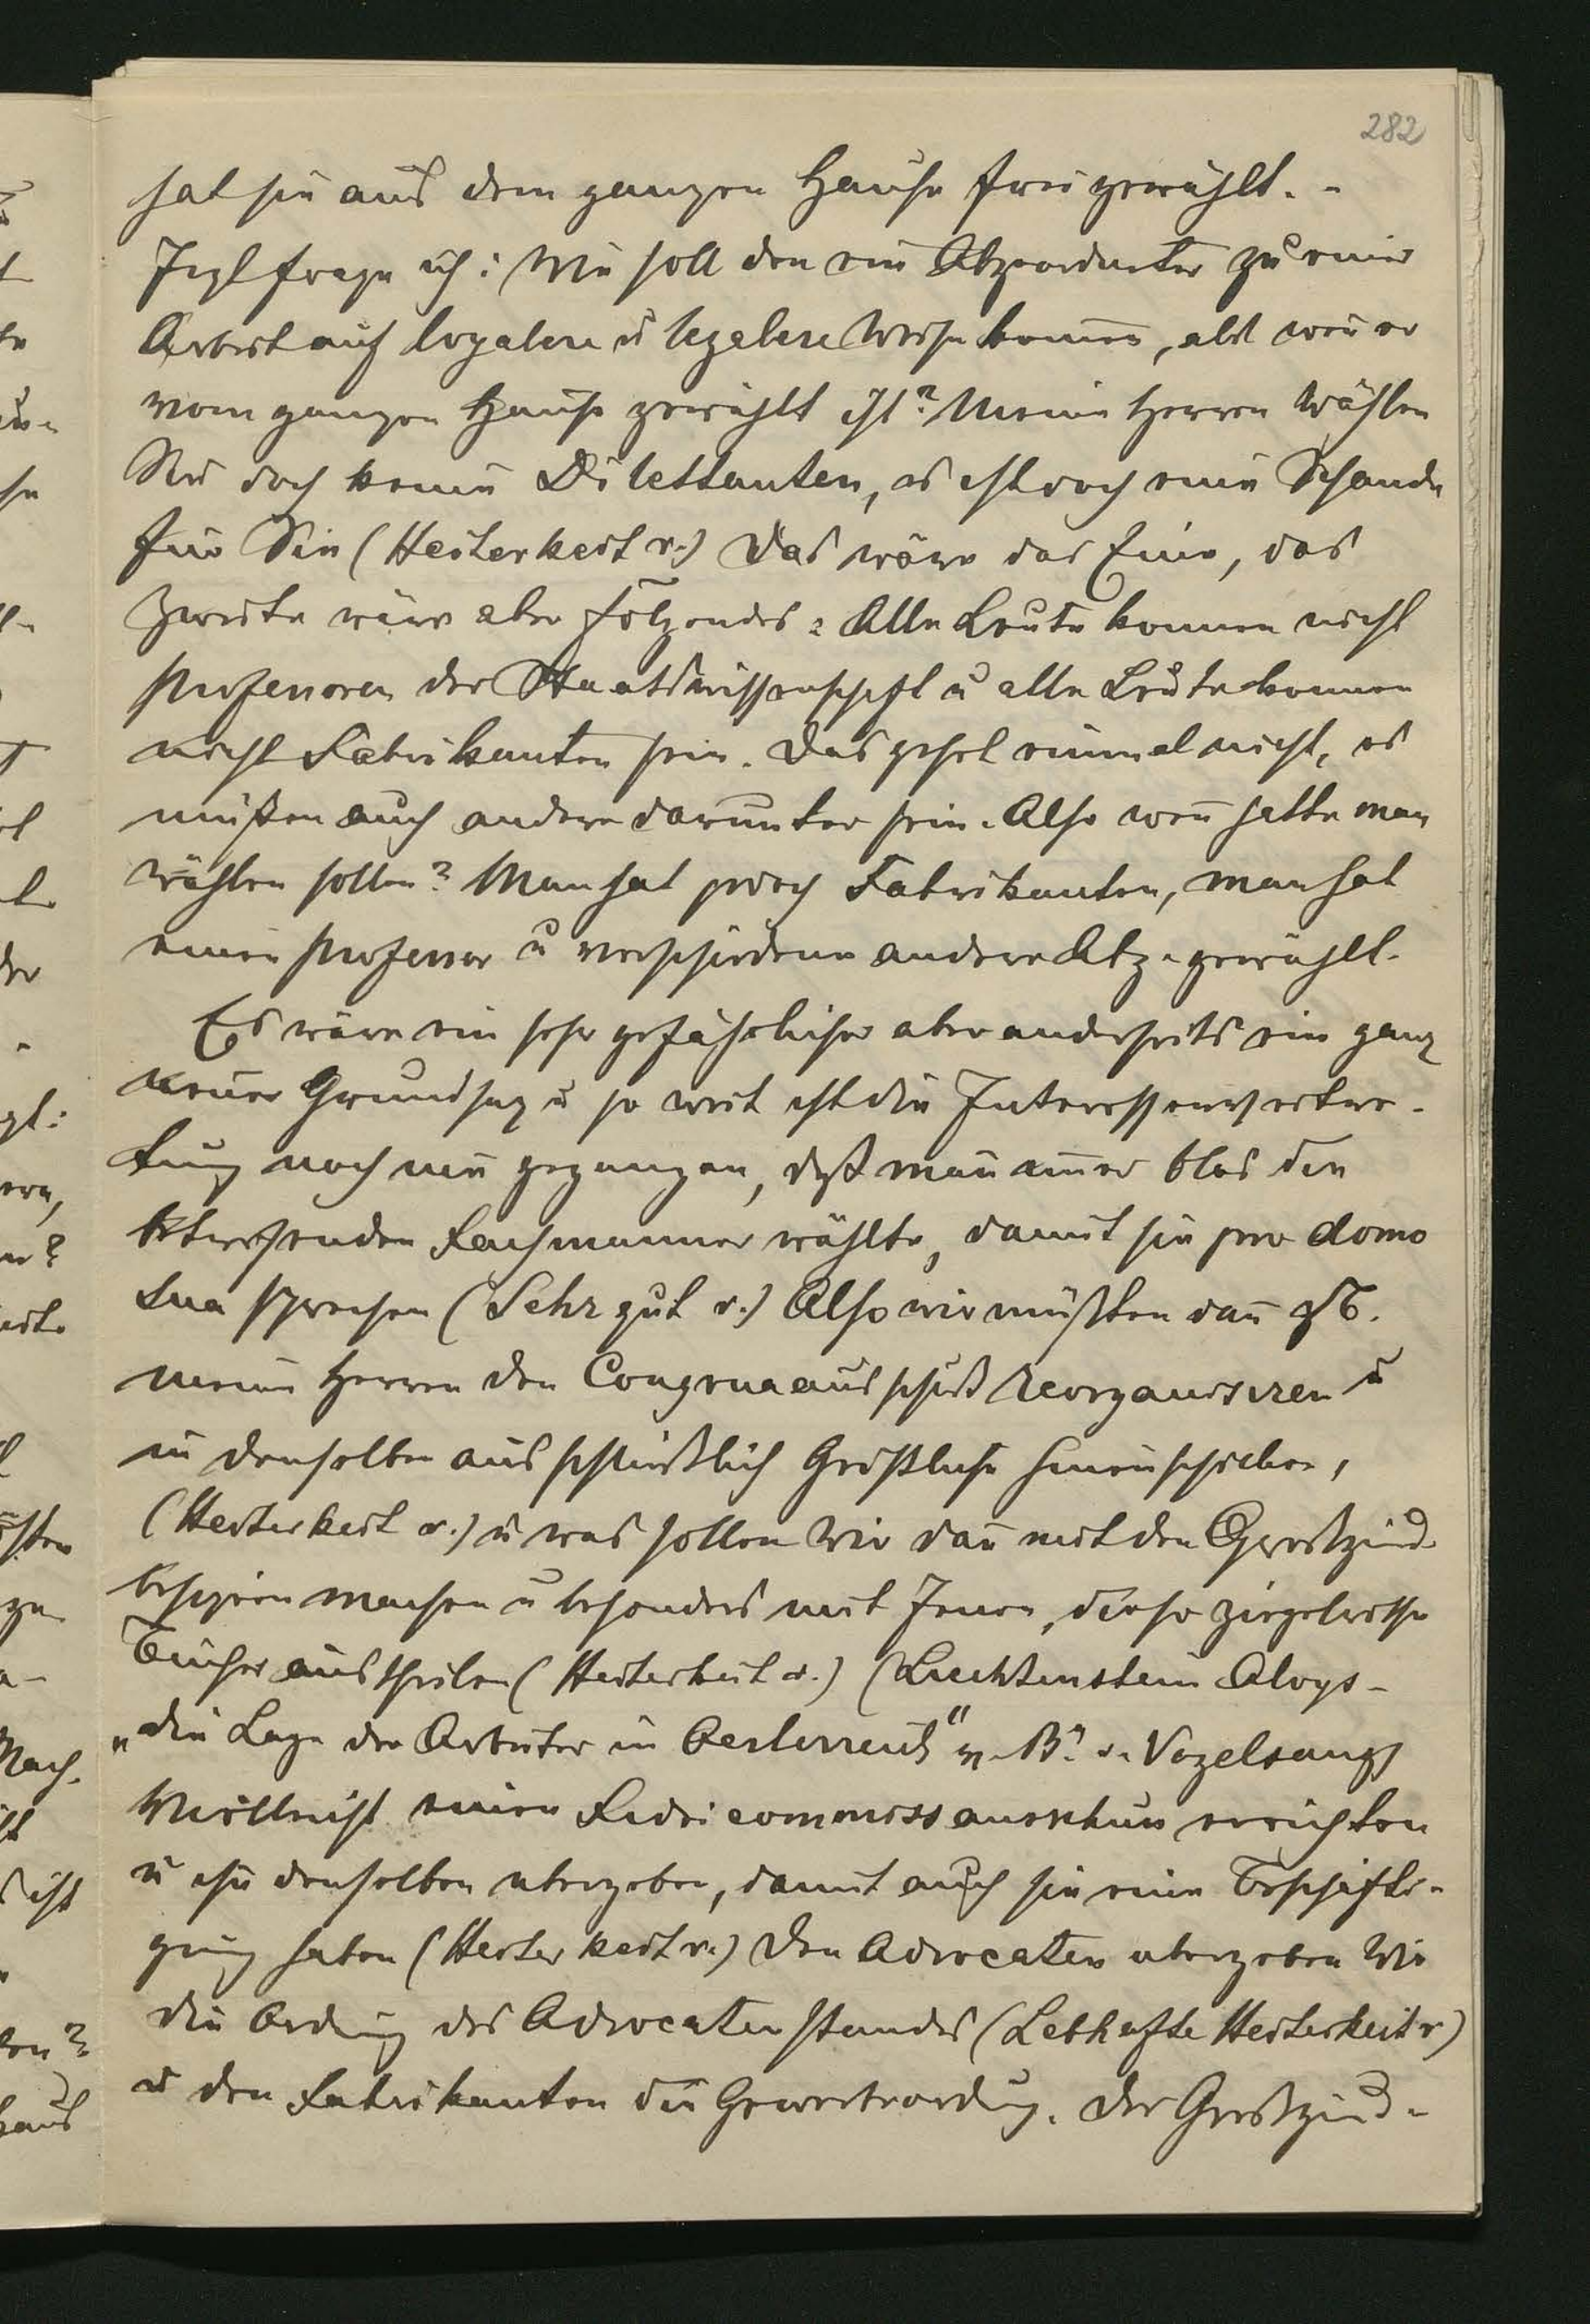 282
hat sie aus dem ganzen Hause frei gewählt. -
Jezt frage ich: Wie soll den ein Abgeordneter zu einer
Arbeit auf loyalere u legalere Weise komen, als wen er
vom ganzen Hause gewählt ist? Meine Herren wählen
Sie doch keine Dilettanten, es ist doch eine Schande
für Sie (Heiterkeit r.) Das wäre das Eine, das
Zweite wäre aber folgendes: Alle Leute konnen nicht
Professoren der Staatswissenschaft u alle Leute konnen
nicht Fabrikanten sein. Das gehet einmal nicht, es
müßen auch andere darunter sein. Also wen hatte man
wählen sollen? Man hat jedoch Fabrikanten, man hat
einen Professor u verschiedene andere Abg. gewählt.
Es wäre ein sehr gefährlicher aber anderseits ein ganz
neuer Grundsaz u so weit ist die Interessenvertre-
tung noch nie gegangen, daß man imer blos den
betreffenden Fachmanner wählte, damit sie pro domo
sua sprechen (Sehr gut r.) Also wir müßten dan zB.
meine Herren den Congruaausschuß reorganisiren u
in denselben ausschließlich Geistliche hineinschieben,
(Heiterkeit r.) u was sollen wir dan mit den Großgrund-
besizern machen u besonders mit Jenen, die so
Bücher austheilen (Heiterkeit r.) (Liechtenstein Aloys -
„die Lage der Arbeiter in Oesterreich" v. B. v. Vogelsang)
Vielleicht einen Fideicommissausschuss errichten
u ihn denselben ubergeben, damit auch sie eine Beschäfti-
gung haben (Heiterkeit r.) den Advocaten ubergeben wir
die Ordnung des Advocatenstandes (Lebhafte Heiterkeit r)
u den Fabrikanten die Gewerbeordng. Der Großgrund-